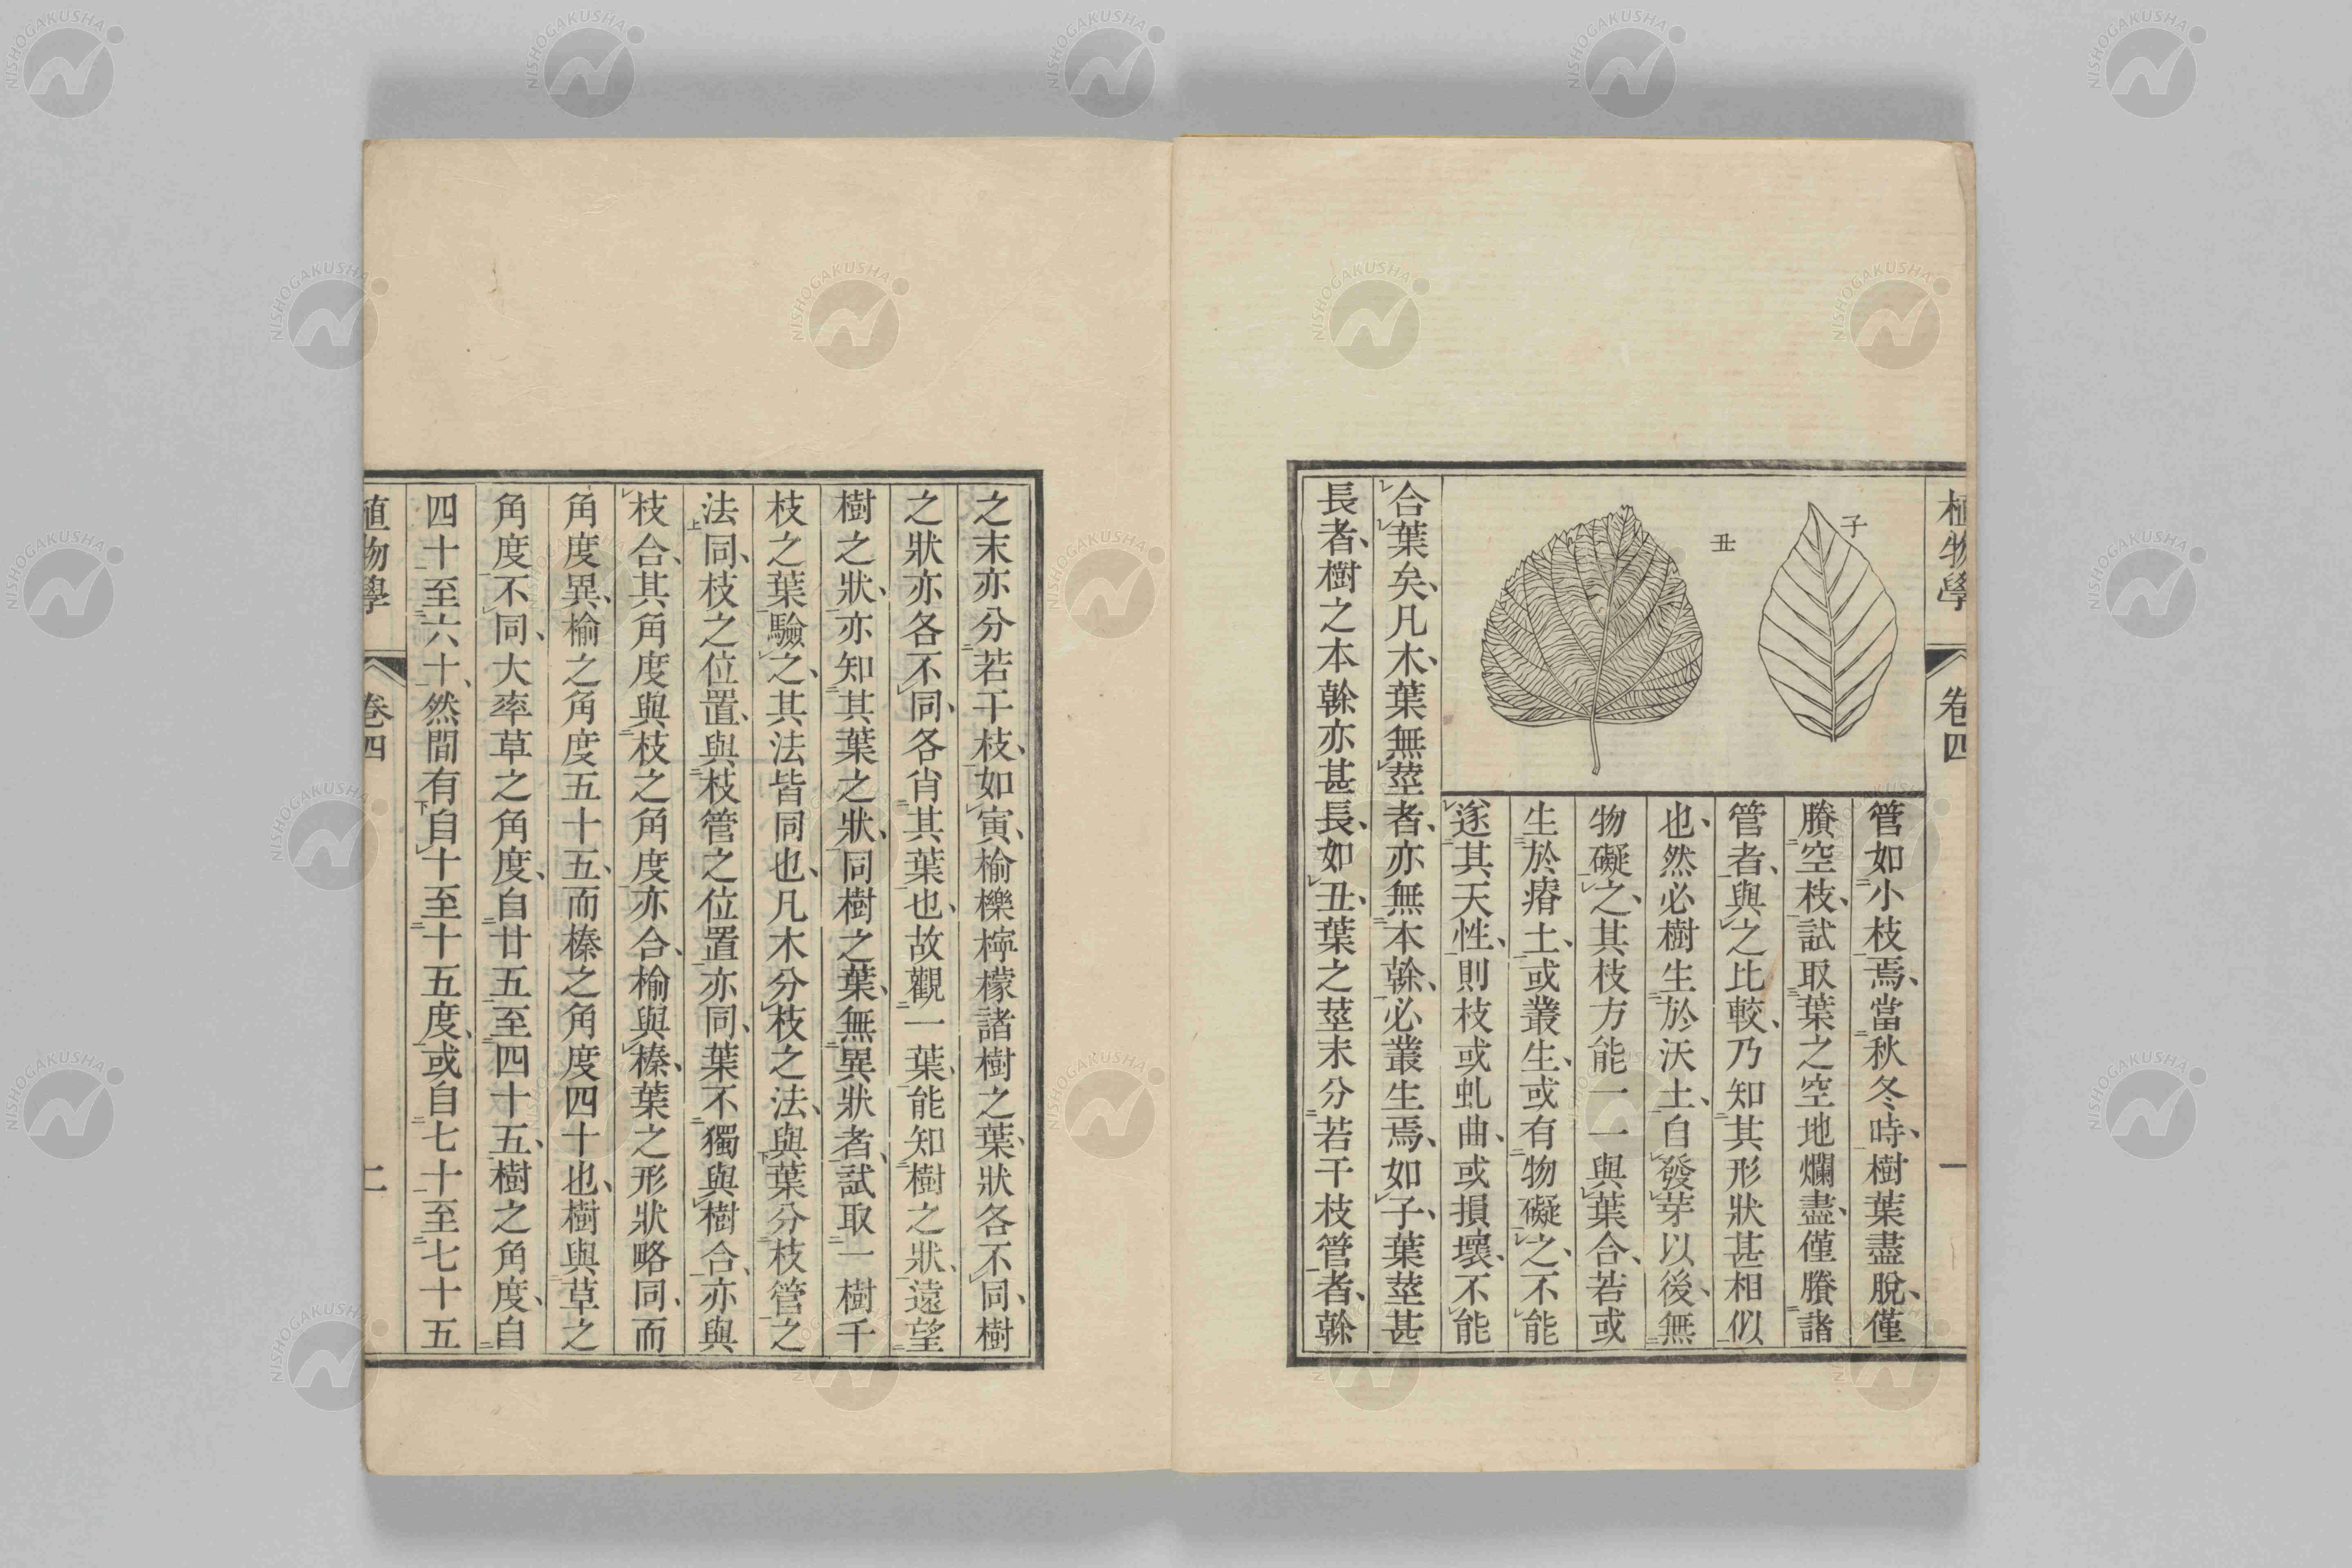 植物學 卷四 一
子
丑
管如小枝焉、當秋冬時、樹葉盡脫、僅
賸空枝、試取葉之空地爛盡、僅賸諸
管者、與之比較、乃知其形狀甚相似
也、然必樹生於沃土、自發芽以後、無
物礙之、其枝方能一一與葉合、若或
生於瘠土、或叢生、或有物礙之、不能
遂其天性、則枝或虬曲、或損壞、不能
合葉矣、凡木、葉無莖者、亦無本榦、必叢生焉、如子、葉莖甚
長者、樹之本榦亦甚長、如丑、葉之莖末分若干枝管者、榦
之末亦分若干枝、如寅、榆櫟檸檬諸樹之葉、狀各不同、樹
之狀亦各不同、各肖其葉也、故觀一葉、能知樹之狀、遠望
樹之狀、亦知其葉之狀、同樹之葉、無異狀者、試取一樹千
枝之葉驗之、其法皆同也、凡木分枝之法、與葉分枝管之
法同、枝之位置、與枝管之位置亦同、葉不獨與樹合、亦與
枝合、其角度與枝之角度亦合、榆與榛、葉之形狀略同、而
角度異、榆之角度五十五、而榛之角度四十也、樹與草之
角度不同、大率草之角度、自廿五至四十五、樹之角度、自
四十至六十、然間有自十至十五度、或自七十至七十五
植物學 卷四 二
NISHOGAKUSHA